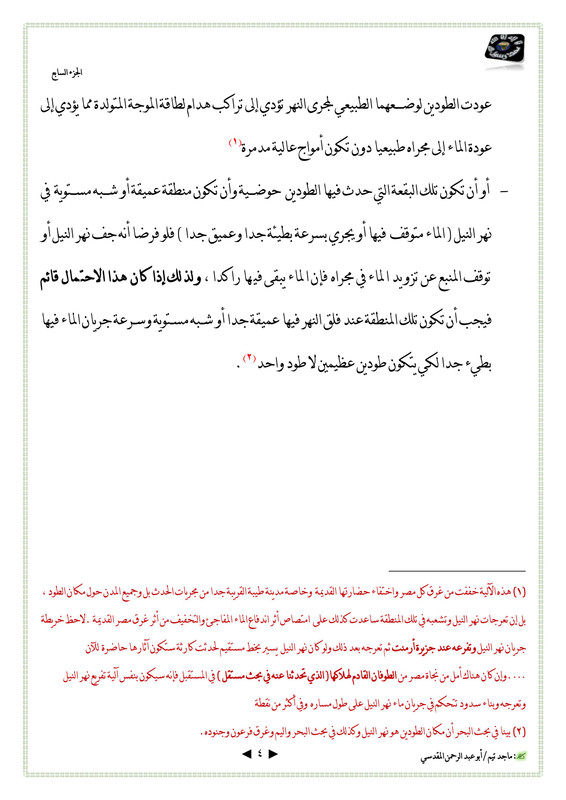 الجزء السابع
عودت الطودين لوضعهما الطبيعي لمجرى النهر تؤدي إلى تراكب هدام لطاقة الموجة المتولدة مما يؤدي إلى
عودة الماء إلى مجراه طبيعيا دون تكون أمواج عالية مدمرة(١)
– أو أن تكون تلك البقعة التي حدث فيها الطودين حوضية وأن تكون منطقة عميقة أو شبه مستوية في
نهر النيل ( الماء متوقف فيها أو يجري بسرعة بطيئة جدا وعميق جدا ) فلو فرضا أنه جف نهر النيل أو
توقف المنبع عن تزويد الماء في مجراه فإن الماء يبقى فيها راكدا ، ولذلك إذا كان هذا الاحتمال قائم
فيجب أن تكون تلك المنطقة عند فلق النهر فيها عميقة جدا أو شبه مستوية وسرعة جريان الماء فيها
بطيء جدا لكي يتكون طودين عظيمين لا طود واحد(٢) .
(١) هذه الآلية خففت من غرق كل مصر واختفاء حضارتها القديمة وخاصة مدينة طيبة القريبة جدا من مجريات الحدث بل وجميع المدن حول مكان الطود ،
بل إن تعرجات نهر النيل وتشعبه في تلك المنطقة ساعدت كذلك على امتصاص أثر اندفاع الماء المفاجئ والتخفيف من أثر غرق مصر القديمة . لاحظ خريطة
جريان نهر النيل وتفرعه عند جزيرة أرمنت ثم تعرجه بعد ذلك ولو كان نهر النيل يسير بخط مستقيم لحدثت كارثة ستكون آثارها حاضرة للآن
.... وإن كان هناك أمل من نجاة مصر من الطوفان القادم لهلاكها ( الذي تحدثنا عنه في بحث مستقل ) في المستقبل فإنه سيكون بنفس آلية تفريع نهر النيل
وتعرجه وبناء سدود تتحكم في جريان ماء نهر النيل على طول مساره وفي أكثر من نقطة
(٢) بينا في بحث البحر أن مكان الطودين هو نهر النيل وكذلك في بحث البحر واليم وغرق فرعون وجنوده .
: ماجد تيم / أبو عبد الرحمن المقدسي ◄ ٤ ►